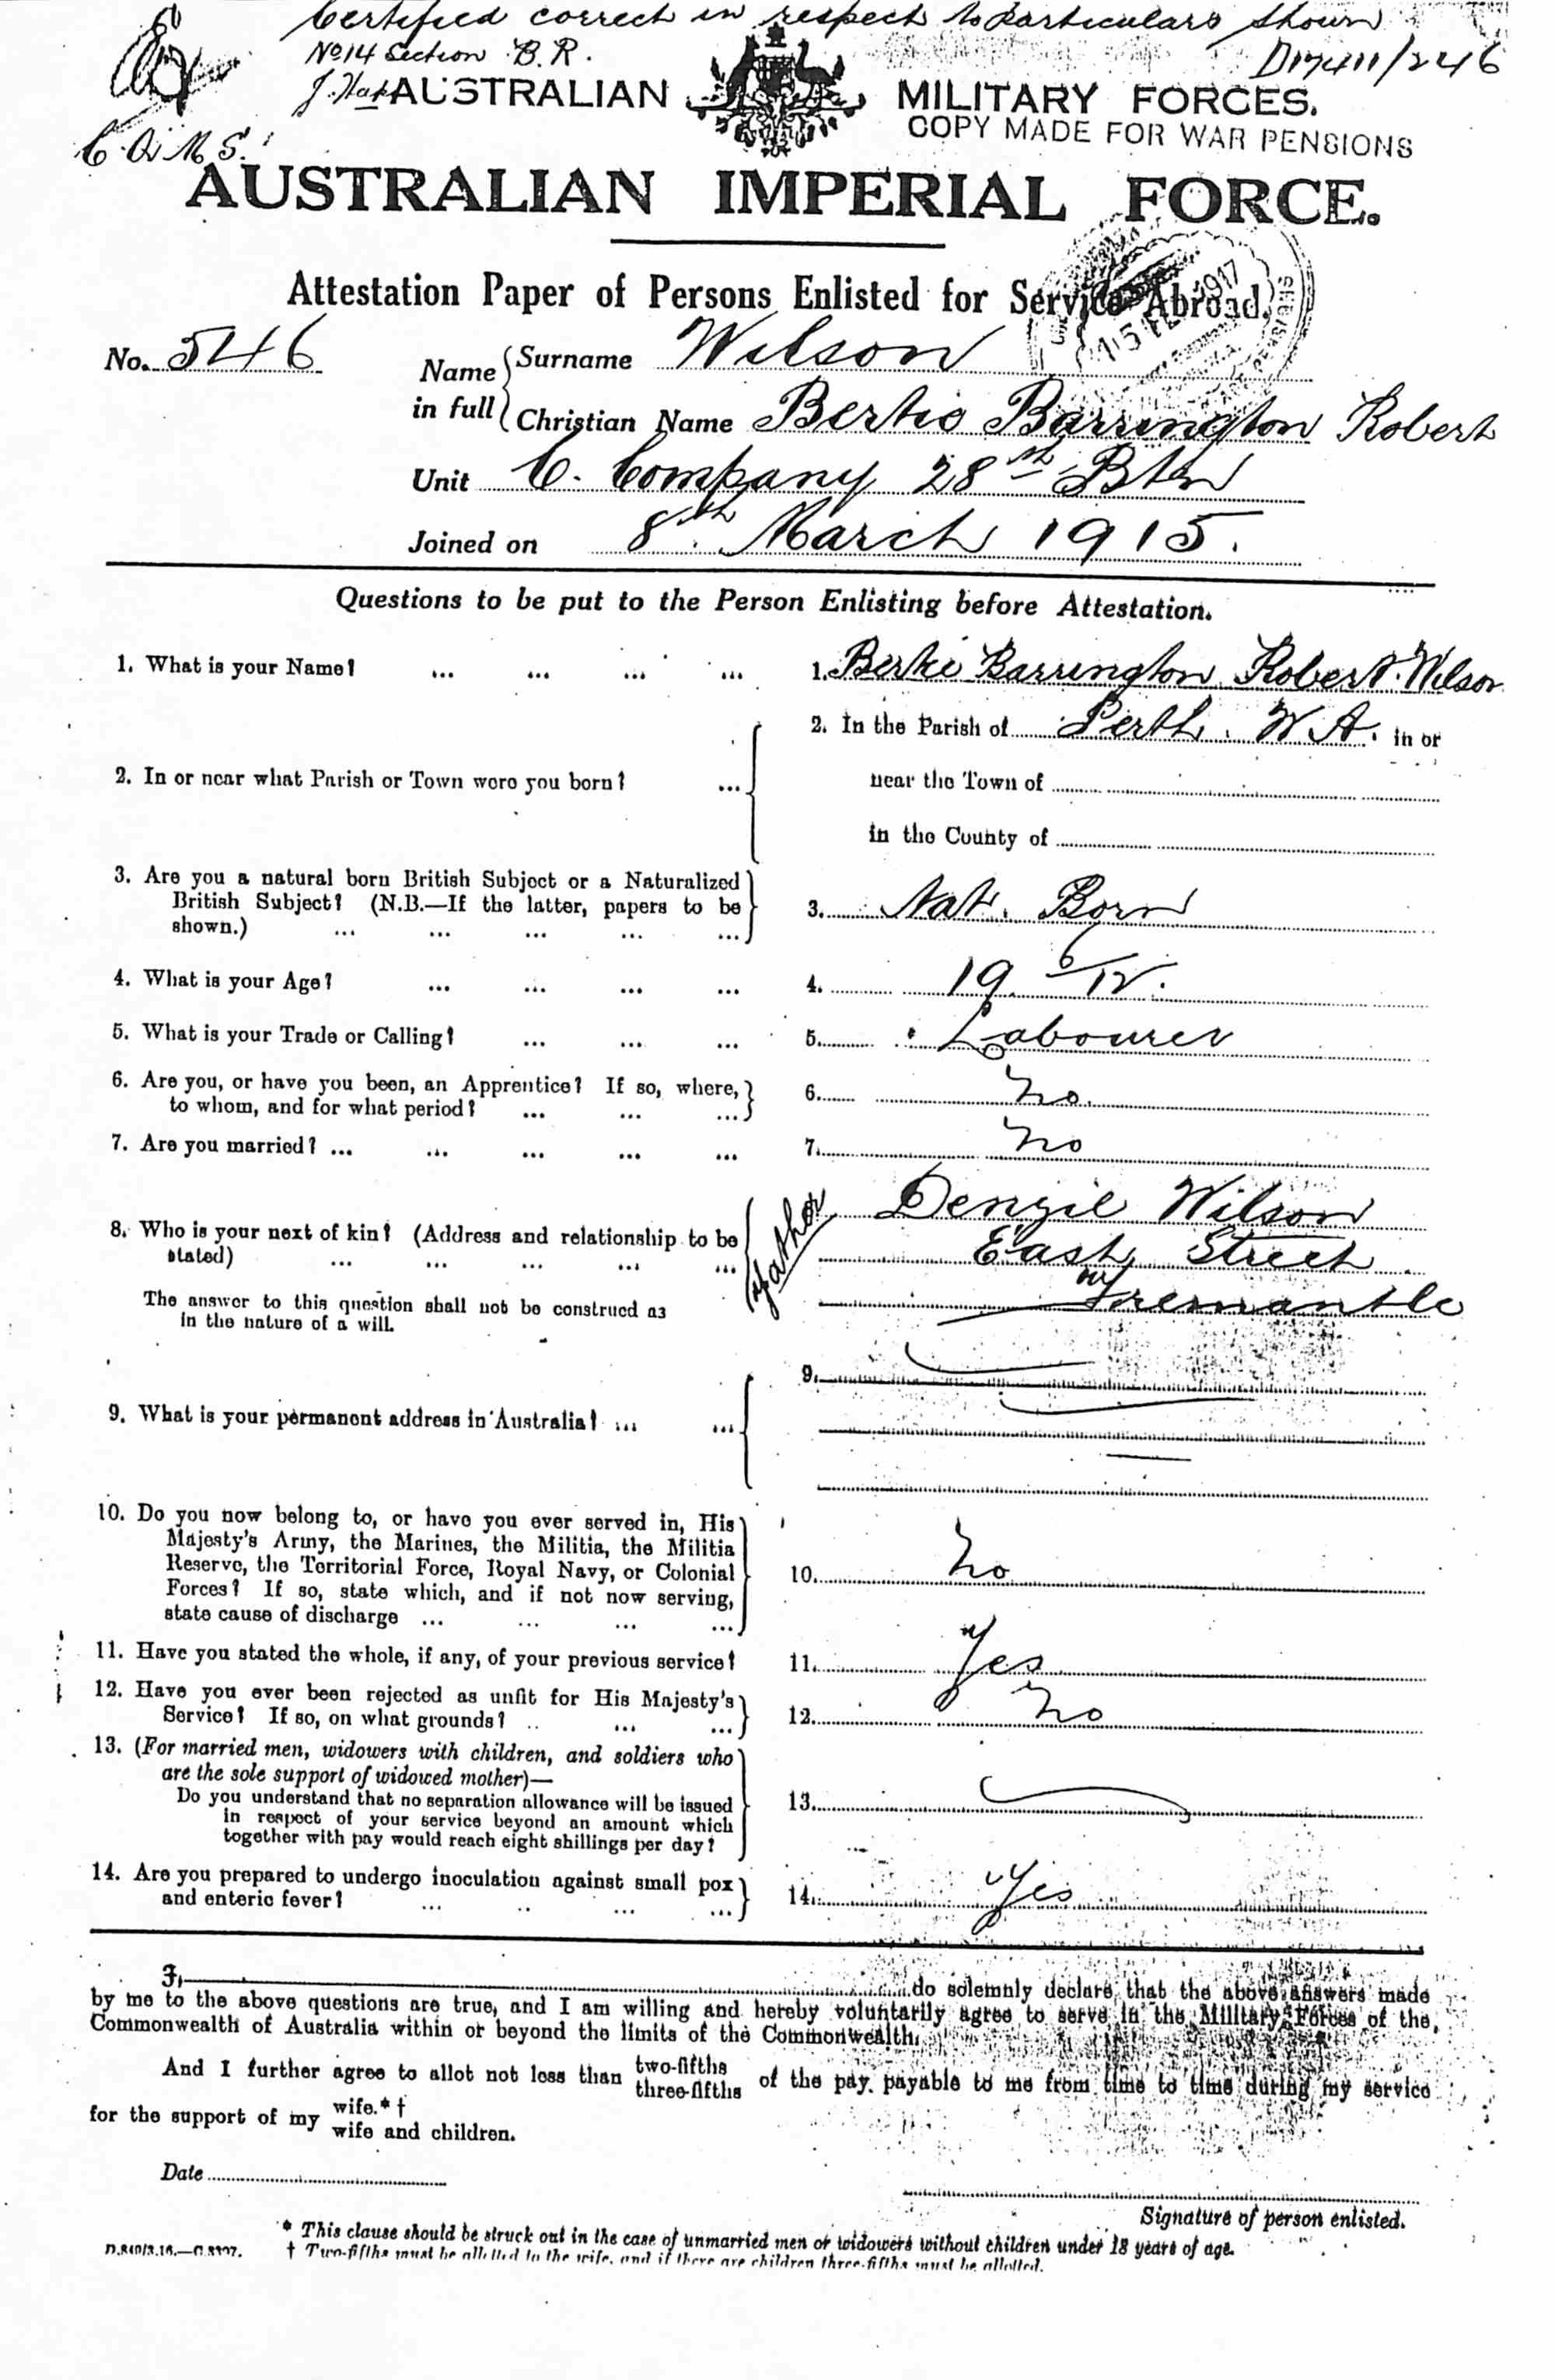 Certified correct in respect to particulars shown
No 14 Section B.R.
D17411/246
AUSTRALIAN MILITARY FORCES.
COPY MADE FOR WAR PENSIONS
C.Q.M.S.
AUSTRALIAN IMPERIAL FORCE.
Attestation Paper of Persons Enlisted for Service Abroad.
15 1917
No. 546
Name in full
Surname Wilson
Christian Name Bertie Barrington Robert
Unit C. Company 28th Btn
Joined on 8th March 1915.
Questions to be put to the Person Enlisting before Attestation.
1. What is your Name? ... ... ... ... 1. Bertie Barrington Robert Wilson
2. In or near what Parish or Town were you born? ... 2. In the Parish of Perth. W.A. in or
near the Town of
in the County of
3. Are you a natural born British Subject or a Naturalized
British Subject? (N.B.—If the latter, papers to be
shown.) ... ... ... ... ... 3. Nat. Born
4. What is your Age? ... ... ... ... 4. 19 6/12.
5. What is your Trade or Calling? ... ... ... 5. Labourer
6. Are you, or have you been, an Apprentice? If so, where,
to whom, and for what period? ... ... ... 6. No.
7. Are you married? ... ... ... ... ... 7. No
8. Who is your next of kin? (Address and relationship to be
stated) ... ... ... ... ...
Father
Denzil Wilson
East Street
Fremantle
The answer to this question shall not be construed as
in the nature of a will.
9. What is your permanent address in Australia? ... ... 9.
10. Do you now belong to, or have you ever served in, His
Majesty's Army, the Marines, the Militia, the Militia
Reserve, the Territorial Force, Royal Navy, or Colonial
Forces? If so, state which, and if not now serving,
state cause of discharge ... ... ... ... 10. No
11. Have you stated the whole, if any, of your previous service? 11. Yes
12. Have you ever been rejected as unfit for His Majesty's
Service? If so, on what grounds? .. ... ... 12. No
13. (For married men, widowers with children, and soldiers who
are the sole support of widowed mother)—
Do you understand that no separation allowance will be issued
in respect of your service beyond an amount which
together with pay would reach eight shillings per day? 13.
14. Are you prepared to undergo inoculation against small pox
and enteric fever? ... .. ... ... 14. Yes
I, do solemnly declare that the above answers made
by me to the above questions are true, and I am willing and hereby voluntarily agree to serve in the Military Forces of the
Commonwealth of Australia within or beyond the limits of the Commonwealth.
And I further agree to allot not less than two-fifths three-fifths of the pay payable to me from time to time during my service
for the support of my wife.* † wife and children.
Date
Signature of person enlisted.
* This clause should be struck out in the case of unmarried men or widowers without children under 18 years of age.
† Two-fifths must be allotted to the wife, and if there are children three-fifths must be allotted.